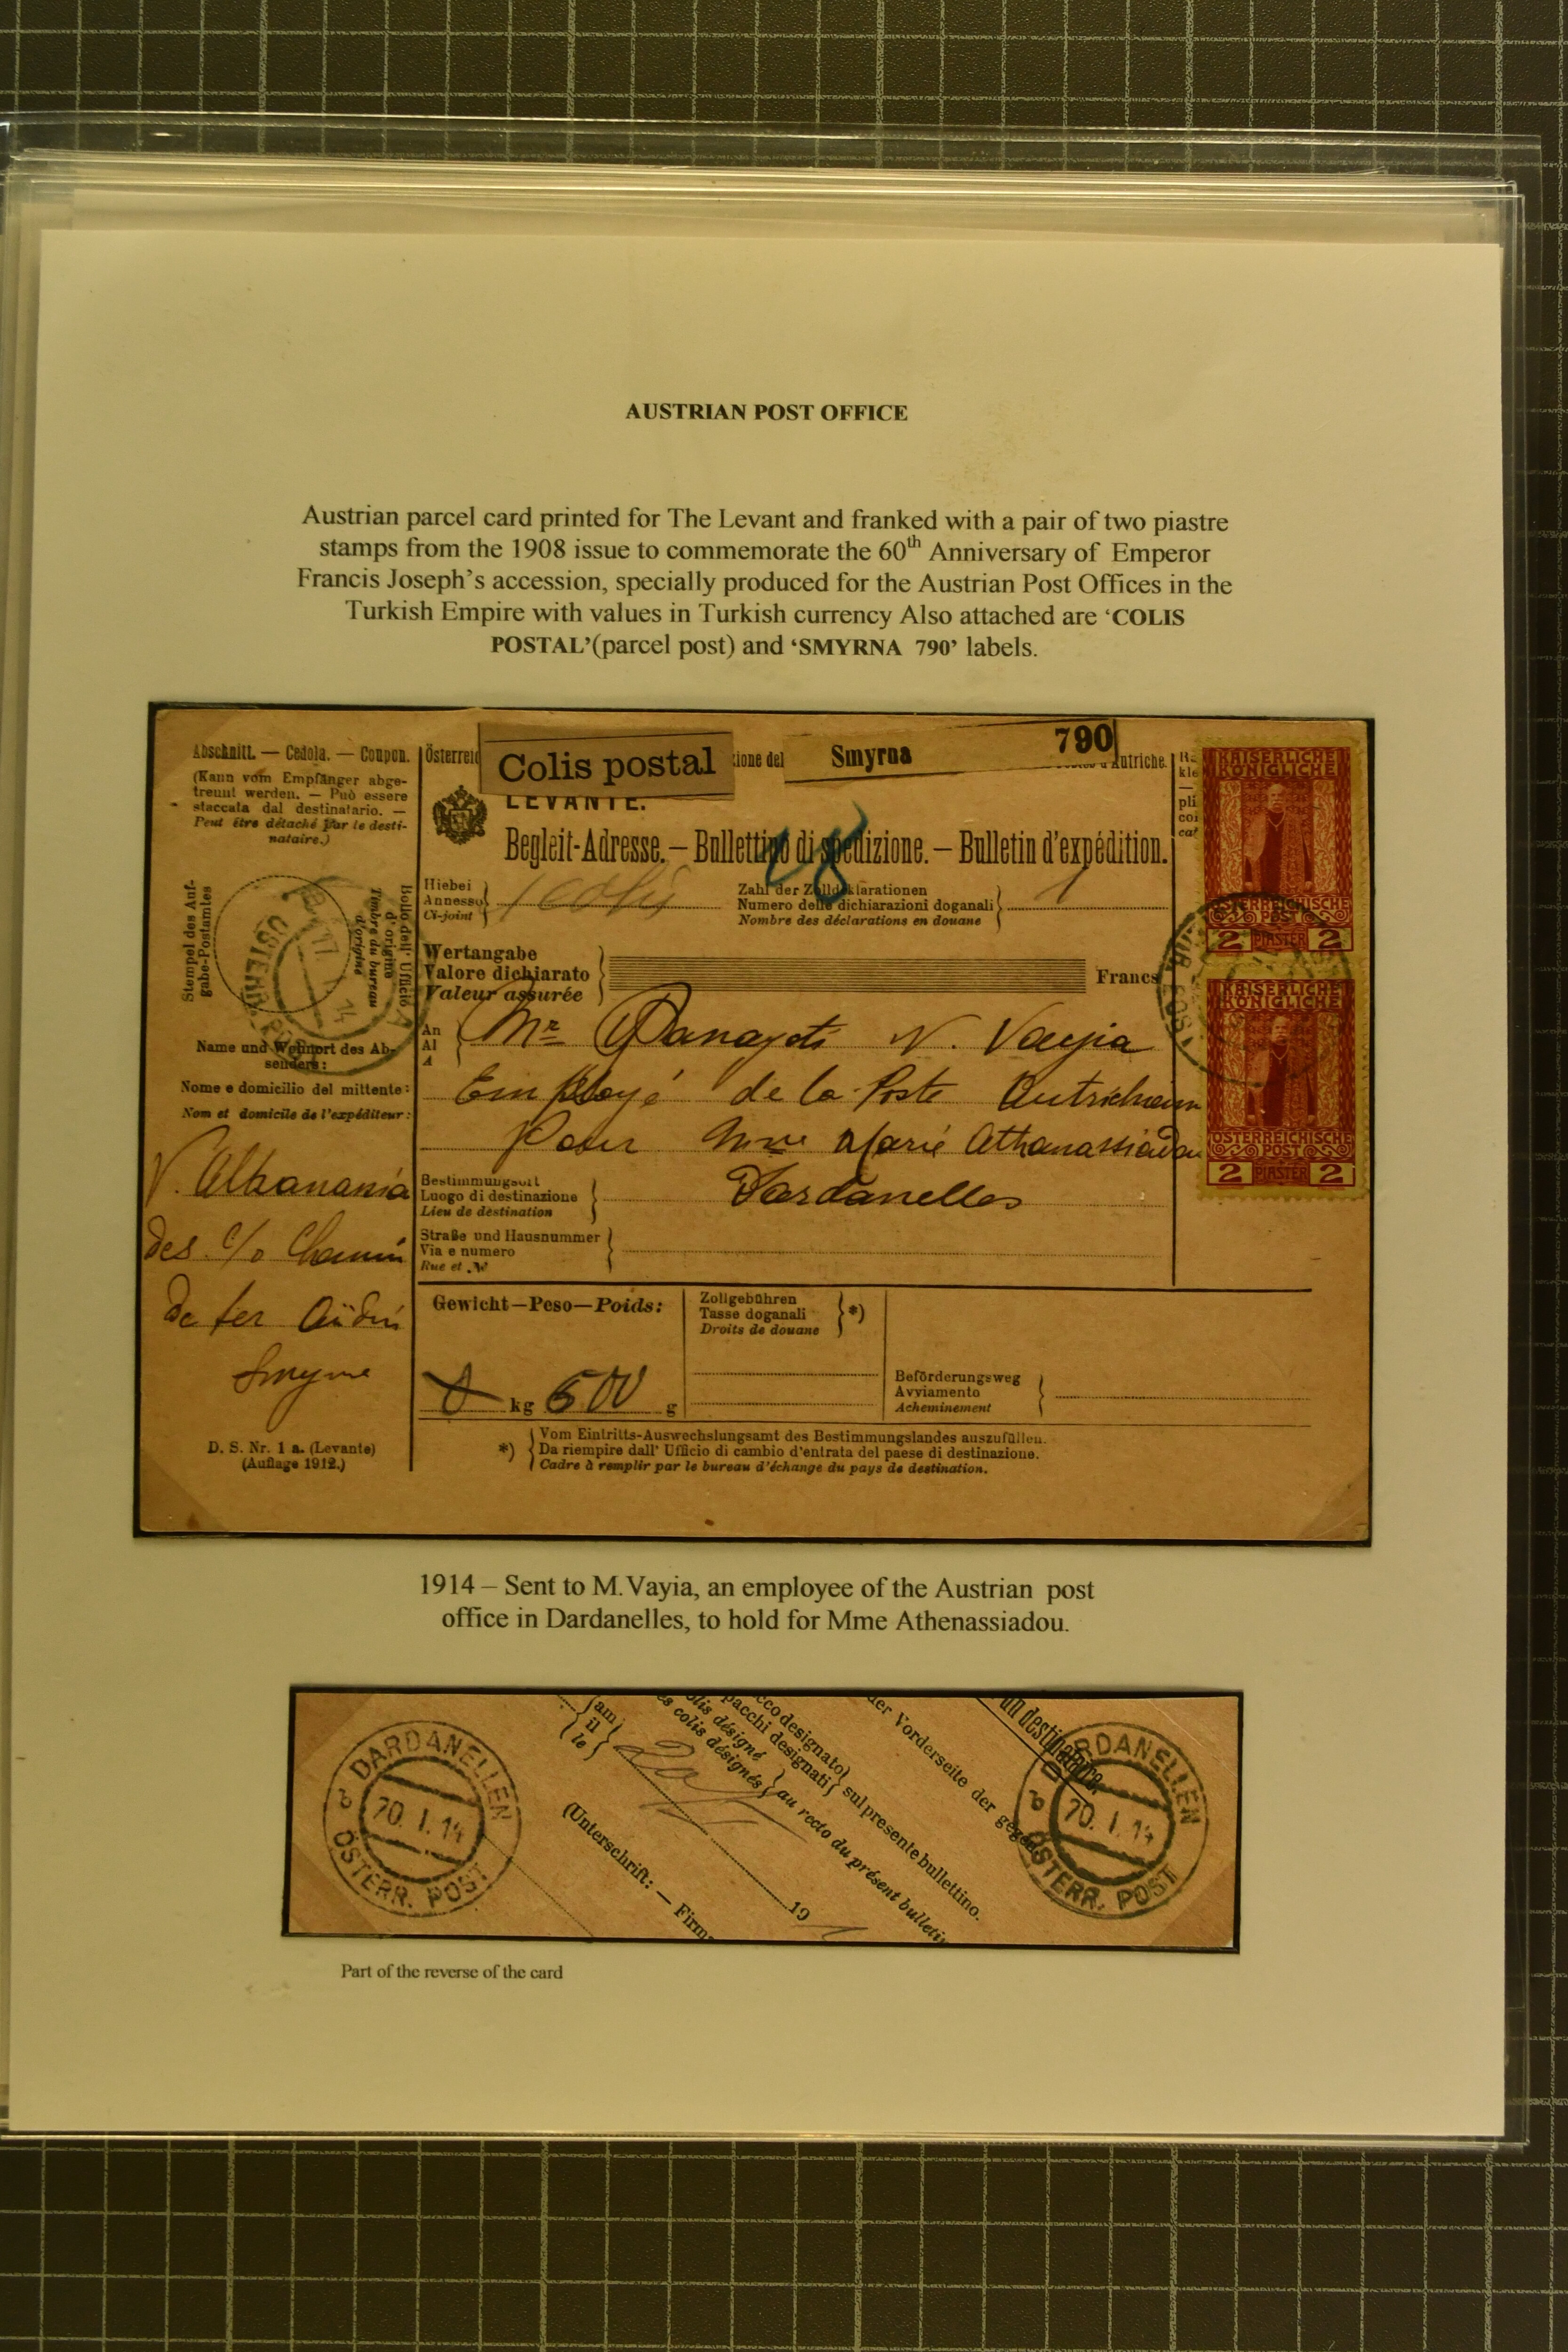 AUSTRIAN POST OFFICE
Austrian parcel card printed for The Levant and franked with a pair of two piastre
stamps from the 1908 issue to commemorate the 60th Anniversary of Emperor
Francis Joseph's accession, specially produced for the Austrian Post Offices in the
Turkish Empire with values in Turkish currency Also attached are 'COLIS
POSTAL'(parcel post) and 'SMYRNA 790' labels.
Abschnitt. — Cedola. — Coupon.
(Kann vom Empfänger abge-
trennt werden. — Può essere
staccata dal destinatario. —
Peut être détaché par le desti-
nataire.)
Stempel des Auf-
gabe-Postamtes
Bollo dell' Ufficio
d' origine
Timbre du bureau
d'origine
17 I 14
Name und Wohnort des Ab-
senders:
Nome e domicilio del mittente:
Nom et domicile de l'expéditeur:
des c/o Chemin
de fer Aïdin
Smyrne
D. S. Nr. 1 a. (Levante)
(Auflage 1912.)
Colis postal
Smyrna 790
LEVANTE.
Begleit-Adresse. — Bullettino di spedizione. — Bulletin d'expédition.
18
Hiebei
Annesso
Ci-joint
1 colis
Zahl der Zolldeklarationen
Numero delle dichiarazioni doganali
Nombre des déclarations en douane
1
Wertangabe
Valore dichiarato
Valeur assurée
Francs
An
Al
A
Mr Panayoti N. Vayia
Employé de la Poste Autrichienn
Pour Mme Marie Athanassiadou
Bestimmungsort
Luogo di destinazione
Lieu de destination
Dardanelles
Straße und Hausnummer
Via e numero
Rue et No
Gewicht—Peso—Poids:
kg 500 g
Zollgebühren
Tasse doganali
Droits de douane
*)
Beförderungsweg
Avviamento
Acheminement
*)
Vom Eintritts-Auswechslungsamt des Bestimmungslandes auszufüllen.
Da riempire dall' Ufficio di cambio d'entrata del paese di destinazione.
Cadre à remplir par le bureau d'échange du pays de destination.
KAISERLICHE
KÖNIGLICHE
ÖSTERREICHISCHE
POST
2 PIASTER 2
KAISERLICHE
KÖNIGLICHE
ÖSTERREICHISCHE
POST
2 PIASTER 2
1914 – Sent to M.Vayia, an employee of the Austrian post
office in Dardanelles, to hold for Mme Athenassiadou.
DARDANELLEN
b
20. I. 14
ÖSTERR. POST
am
il
le
cco designato
pacchi designati
olis désigné
es colis désignés
sul presente bullettino.
au recto du présent bulleti
der Vorderseite der gegen
un destinataire.
19
(Unterschrift: — Firm
DARDANELLEN
b
20. I. 14
ÖSTERR. POST
Part of the reverse of the card